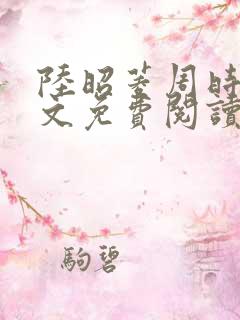 陸昭菱周時
文免費閱讀
駒碧